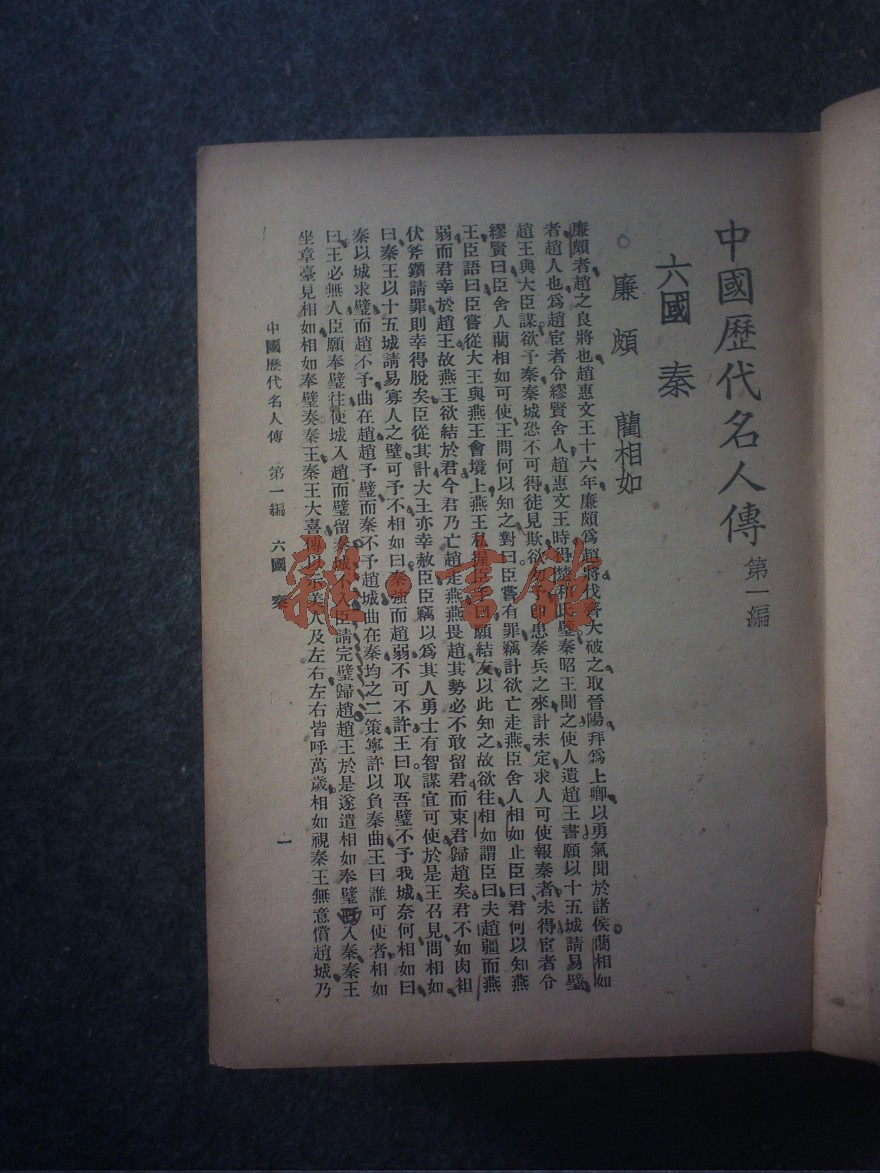 中國歷代名人傳 第一編
六國 秦
廉頗 藺相如
廉頗者趙之良將也趙惠文王十六年廉頗爲趙將伐齊大破之取晉陽拜爲上卿以勇氣聞於諸侯藺相如
者趙人也爲趙宦者令繆賢舍人趙惠文王時得楚和氏璧秦昭王聞之使人遺趙王書願以十五城請易璧
趙王與大臣謀欲予秦秦城恐不可得徒見欺欲勿予卽患秦兵之來計未定求人可使報秦者未得宦者令
繆賢曰臣舍人藺相如可使王問何以知之對曰臣嘗有罪竊計欲亡走燕臣舍人相如止臣曰君何以知燕
王臣語曰臣嘗從大王與燕王會境上燕王私握臣手曰願結友以此知之故欲往相如謂臣曰夫趙彊而燕
弱而君幸於趙王故燕王欲結於君今君乃亡趙走燕燕畏趙其勢必不敢留君而束君歸趙矣君不如肉袒
伏斧鑕請罪則幸得脫矣臣從其計大王亦幸赦臣臣竊以爲其人勇士有智謀宜可使於是王召見問相如
曰秦王以十五城請易寡人之璧可予不相如曰秦強而趙弱不可不許王曰取吾璧不予我城奈何相如曰
秦以城求璧而趙不予曲在趙趙予璧而秦不予趙城曲在秦均之二策寧許以負秦曲王曰誰可使者相如
曰王必無人臣願奉璧往使城入趙而璧留秦城不入臣請完璧歸趙趙王於是遂遣相如奉璧西入秦秦王
坐章臺見相如相如奉璧奏秦王秦王大喜傳以示美人及左右左右皆呼萬歲相如視秦王無意償趙城乃
中國歷代名人傳 第一編 六國 秦 一
雜·書館